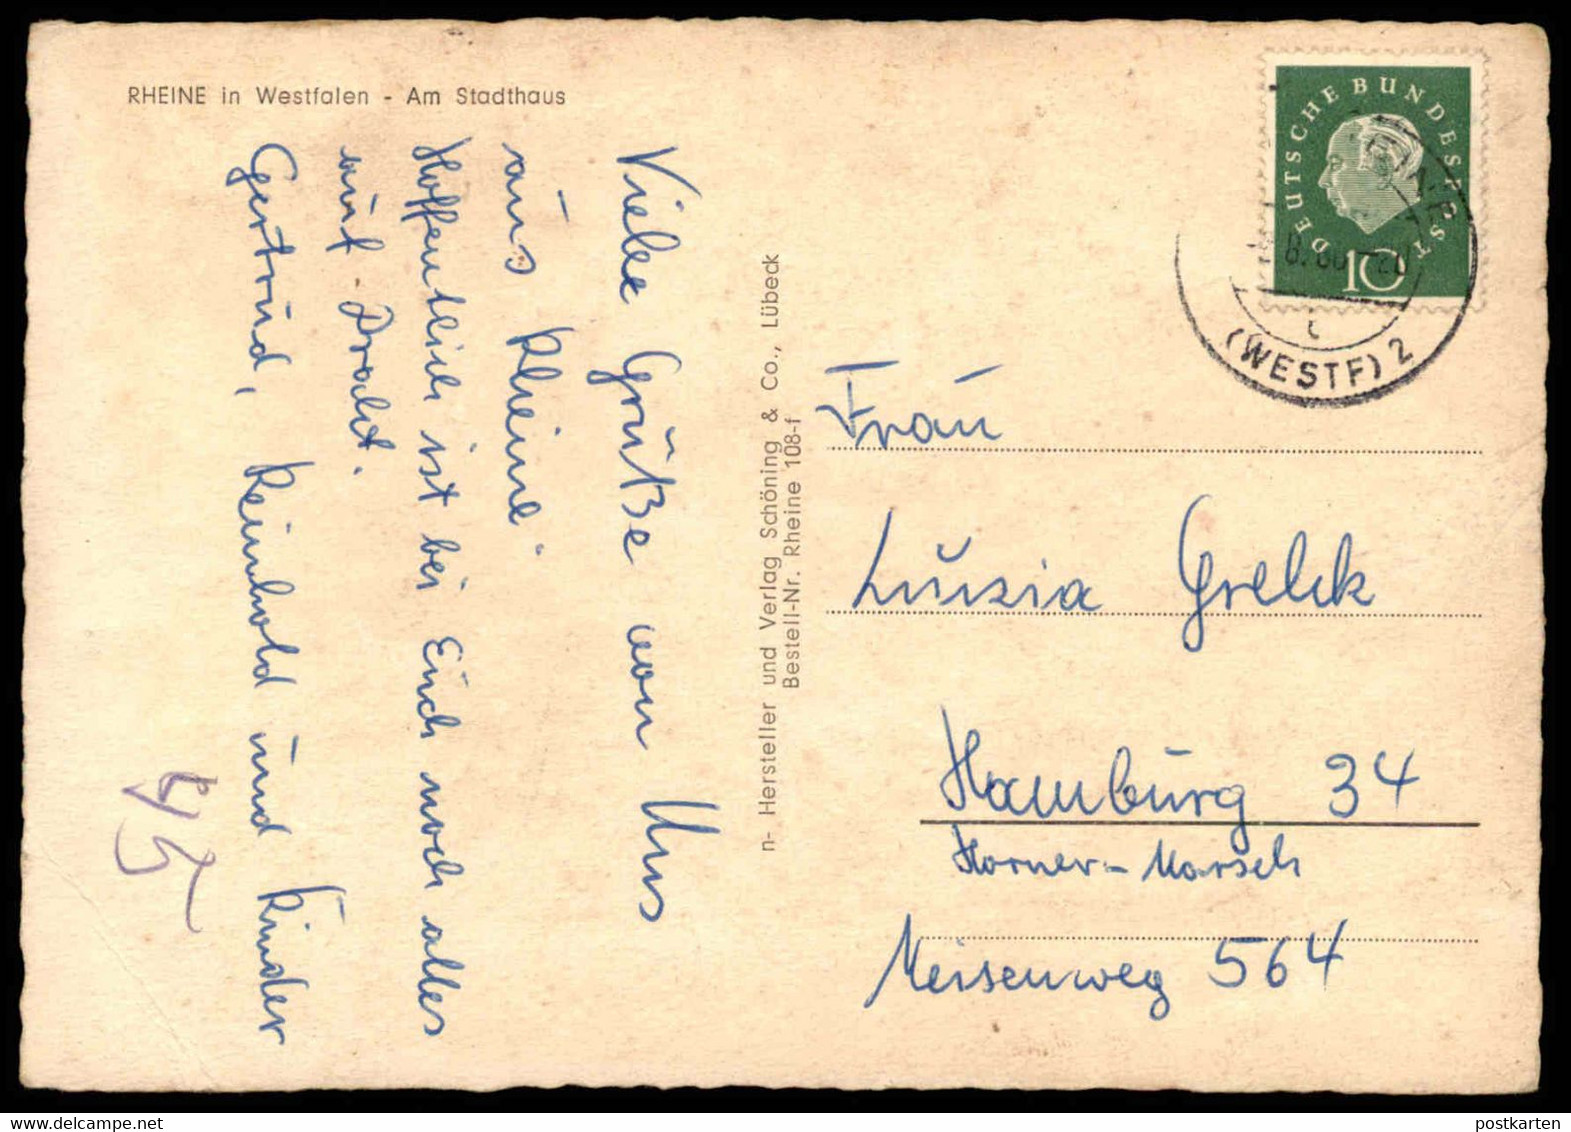 RHEINE in Westfalen - Am Stadthaus
Viele Grüße von Uns
aus Rheine
Hoffentlich ist bei Euch noch alles
auf Draht.
Gertrud, Reinhold und Kinder
45
n- Hersteller und Verlag Schöning & Co., Lübeck
Bestell-Nr. Rheine 108-f
DEUTSCHE BUNDESPOST
10
RHEINE
(WESTF) 2
Frau
Luzia Grelck
Hamburg 34
Horner-Marsch
Meisenweg 564
postkarten